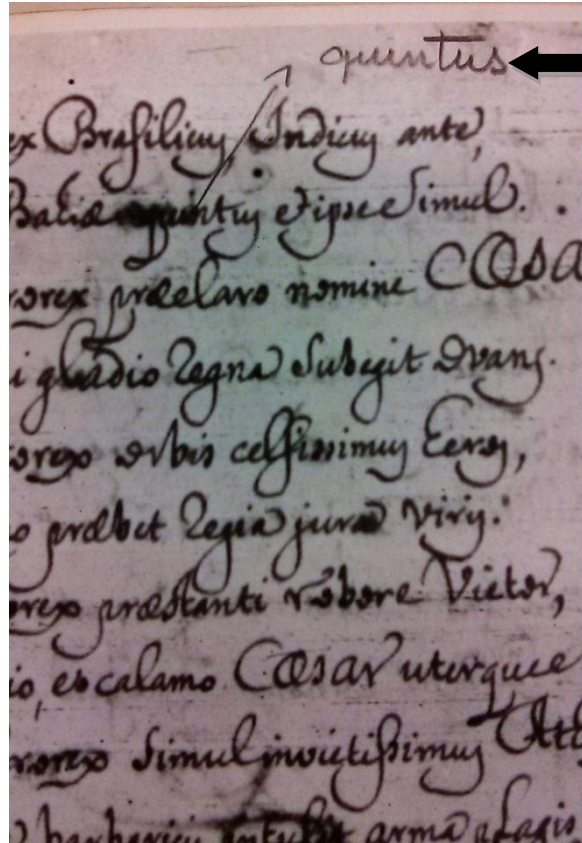 quintus
ex Brasilicus Indicus ante,
Bahiæ quintus et ipse simul.
rorex præclaro nomine CÆSA
i gladio Regna subegit ovans.
orex orbis celsissimus Eeros,
o præbet Regia jura viris.
orex præstanti robore Victor,
io, et calamo CÆSAR uterque
rorex simul invictissimus Atl
barbaricis intulit arma plagis